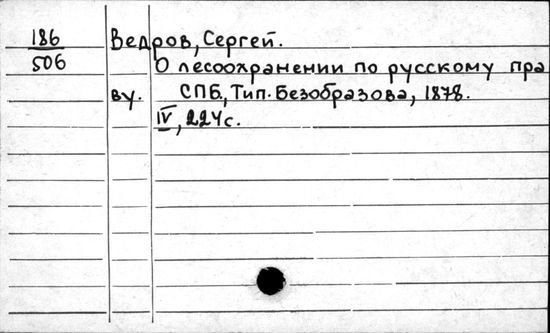 186 Ведров, Сергей.
506 О лесоохранении по русскому пра
ву. СПБ., Тип. Безобразова, 1878.
IV, 224с.